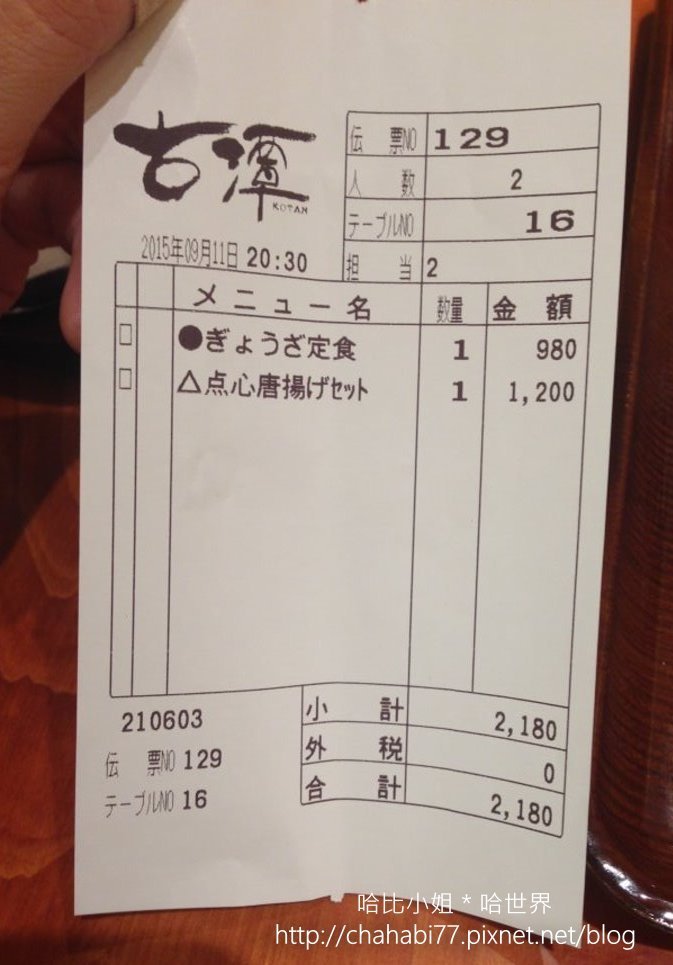 古潭
KOTAN
伝票NO 129
人数 2
テーブルNO 16
2015年09月11日 20:30
担当 2
メニュー名 数量 金額
●ぎょうざ定食 1 980
△点心唐揚げセット 1 1,200
210603
小計 2,180
伝票NO 129
外税 0
テーブルNO 16
合計 2,180
哈比小姐 * 哈世界
http://chahabi77.pixnet.net/blog